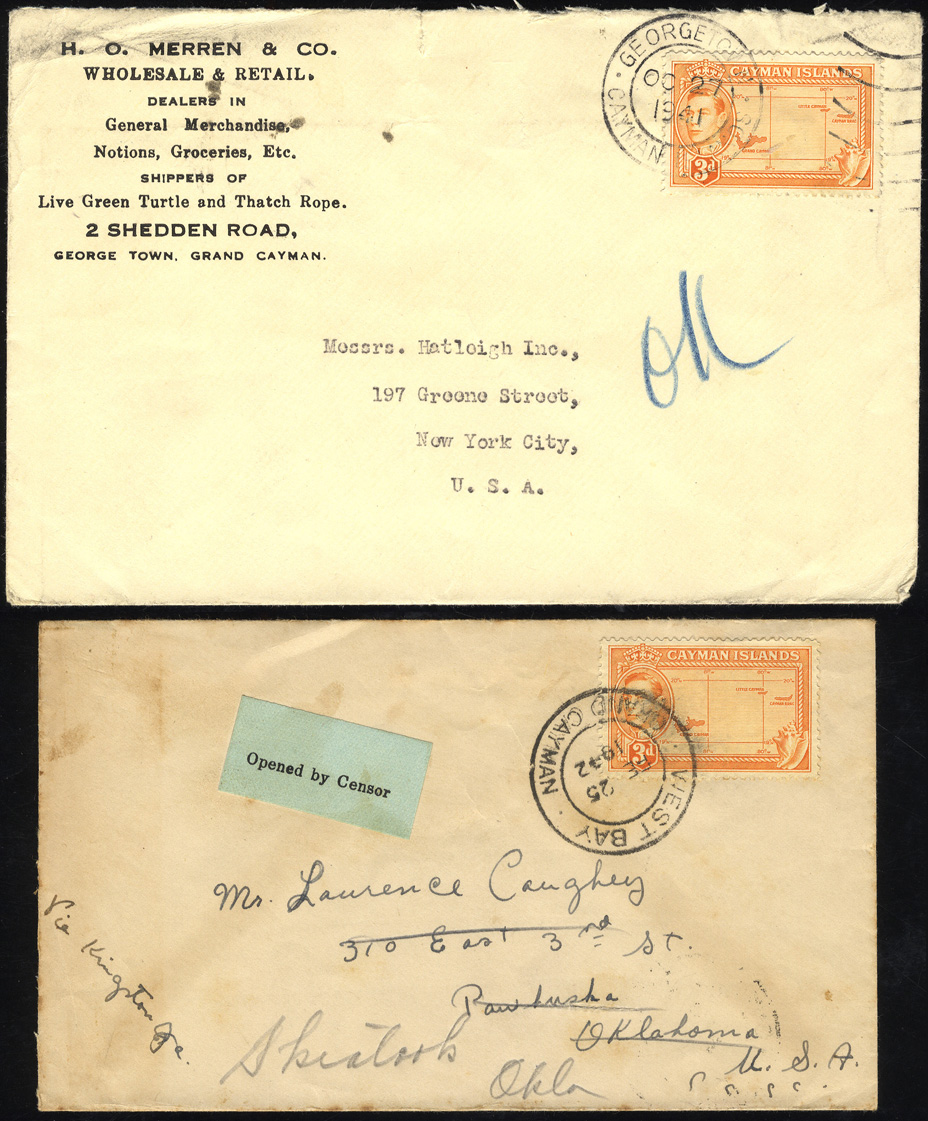 H. O. MERREN & CO.
WHOLESALE & RETAIL.
DEALERS IN
General Merchandise,
Notions, Groceries, Etc.
SHIPPERS OF
Live Green Turtle and Thatch Rope.
2 SHEDDEN ROAD,
GEORGE TOWN, GRAND CAYMAN.
OC 27
1941
CAYMAN
CAYMAN ISLANDS
3d
OK
Messrs. Hatleigh Inc.,
197 Greene Street,
New York City,
U. S. A.
CAYMAN ISLANDS
3d
WEST BAY · GRAND CAYMAN ·
25
1942
Opened by Censor
Mr. Laurence Caughey
310 East 3rd St.
Pawhuska
Oklahoma
U. S. A.
Via Kingston Ja.
Skiatook
Okla